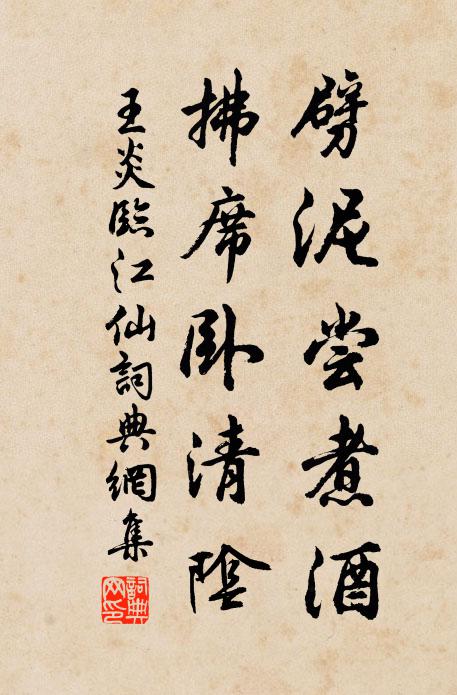 劈泥尝煮酒
拂席卧清陰
王炎臨江仙詞典網集
詞典
网印